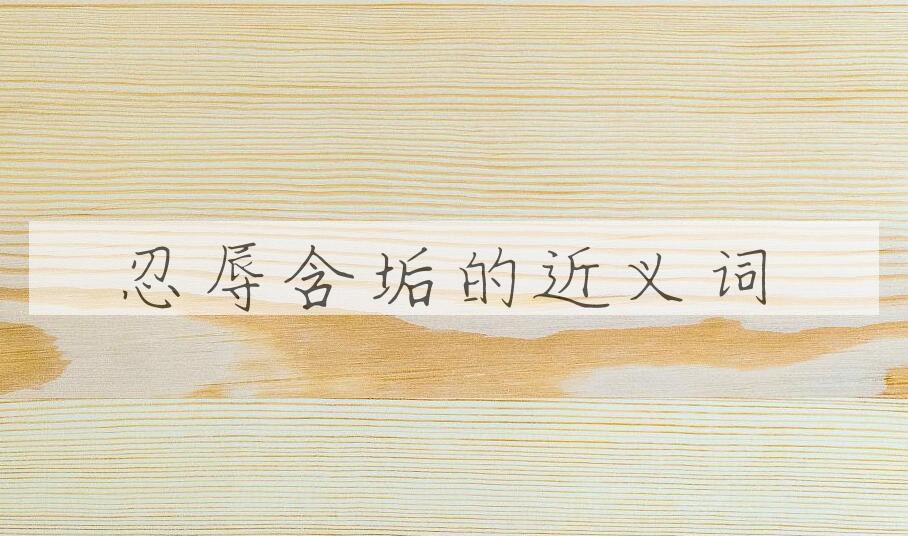 忍辱含垢的近义词